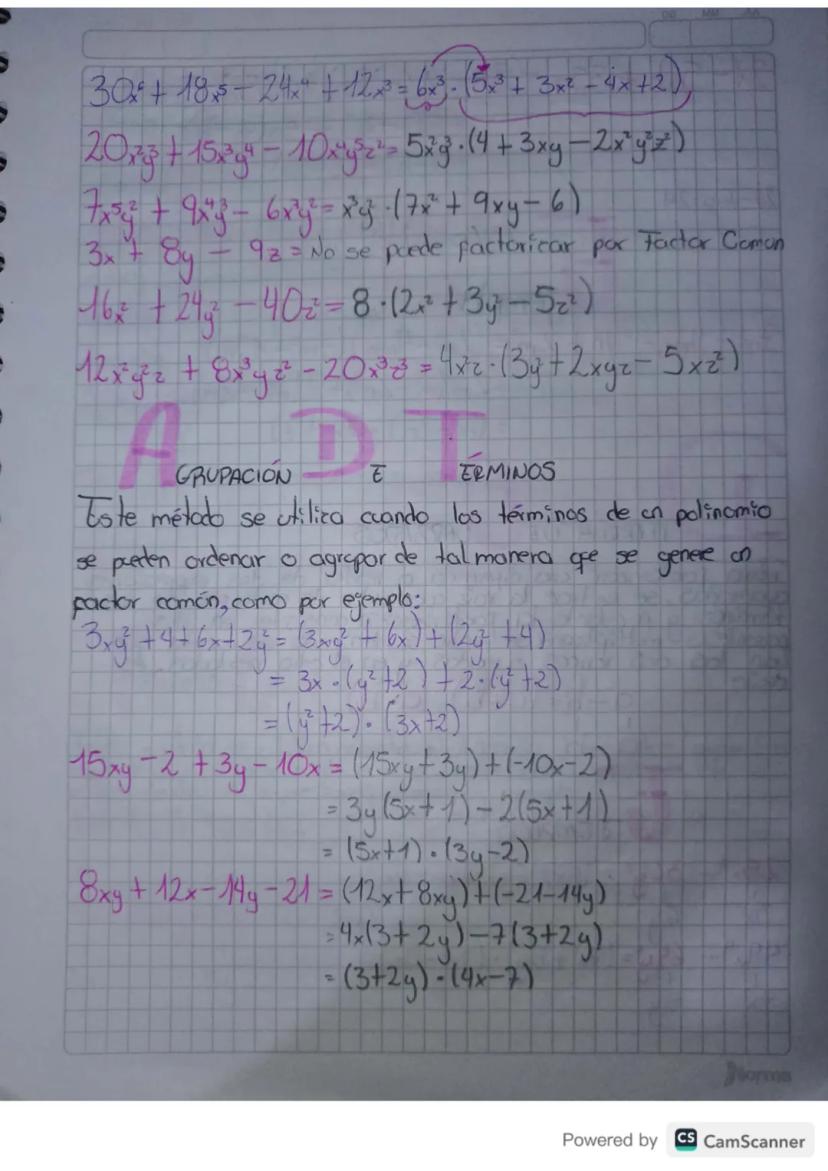 30x⁶ + 18x⁵ - 24x⁴ + 12x³ = 6x³ · (5x³ + 3x² - 4x + 2)
20x²y³ + 15x³y⁴ - 10x⁴y⁵z² = 5x²y³ · (4 + 3xy - 2x²y²z²)
7x⁵y² + 9x⁴y³ - 6x³y² = x³y² · (7x² + 9xy - 6)
3x + 8y - 9z = No se puede factorizar por Factor Comun
16x² + 24y² - 40z² = 8 · (2x² + 3y² - 5z²)
12x²y²z + 8x³yz² - 20x³z³ = 4x²z · (3y² + 2xyz - 5xz²)
AGRUPACIÓN DE TÉRMINOS
Este método se utiliza cuando los términos de un polinomio
se pueden ordenar o agrupar de tal manera que se genere un
factor común, como por ejemplo:
3xy² + 4 + 6x + 2y² = (3xy² + 6x) + (2y² + 4)
= 3x · (y² + 2) + 2 · (y² + 2)
= (y² + 2) · (3x + 2)
15xy - 2 + 3y - 10x = (15xy + 3y) + (-10x - 2)
= 3y (5x + 1) - 2(5x + 1)
= (5x + 1) · (3y - 2)
8xy + 12x - 14y - 21 = (12x + 8xy) + (-21 - 14y)
= 4x(3 + 2y) - 7(3 + 2y)
= (3 + 2y) · (4x - 7)
Norma
Powered by CS CamScanner